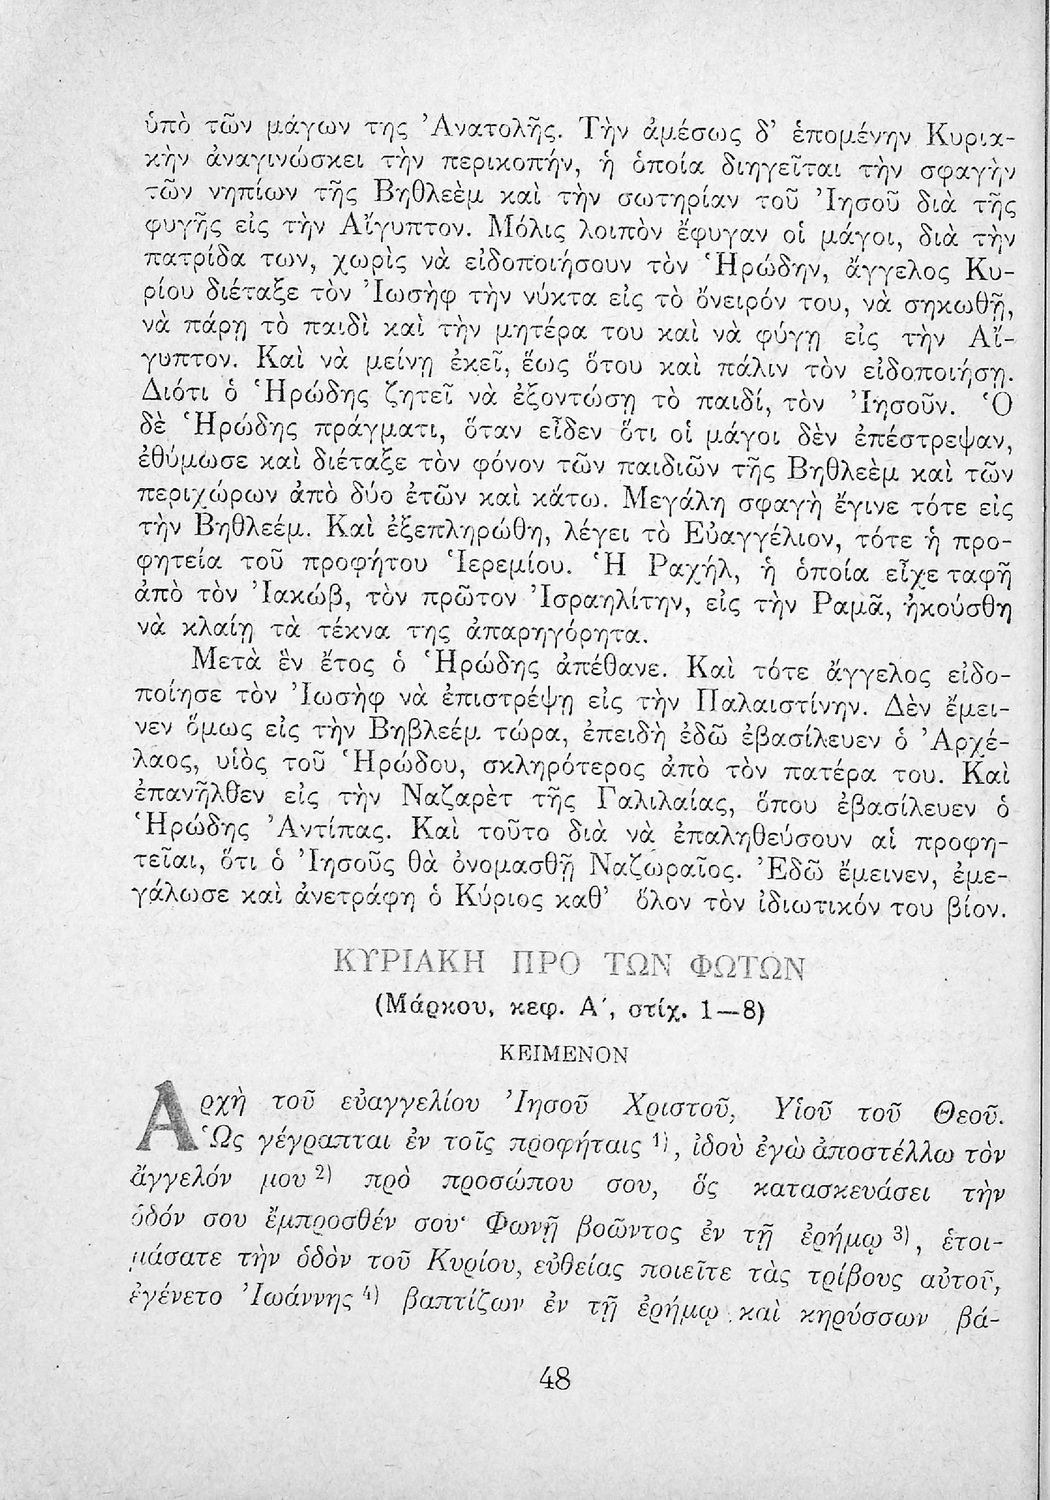 ὑπὸ τῶν μάγων της Ἀνατολῆς. Τὴν ἀμέσως δ’ ἑπομένην Κυρια-
κὴν ἀναγινώσκει τὴν περικοπήν, ἡ ὁποία διηγεῖται τὴν σφαγὴν
τῶν νηπίων τῆς Βηθλεὲμ καὶ τὴν σωτηρίαν τοῦ Ἰησοῦ διὰ τῆς
φυγῆς εἰς τὴν Αἴγυπτον. Μόλις λοιπὸν ἔφυγαν οἱ μάγοι, διὰ τὴν
πατρίδα των, χωρὶς νὰ εἰδοποιήσουν τὸν Ἡρώδην, ἄγγελος Κυ-
ρίου διέταξε τὸν Ἰωσὴφ τὴν νύκτα εἰς τὸ ὄνειρόν του, νὰ σηκωθῇ,
νὰ πάρῃ τὸ παιδὶ καὶ τὴν μητέρα του καὶ νὰ φύγῃ εἰς τὴν Αἴ-
γυπτον. Καὶ νὰ μείνῃ ἐκεῖ, ἕως ὅτου καὶ πάλιν τὸν εἰδοποιήσῃ.
Διότι ὁ Ἡρώδης ζητεῖ νὰ ἐξοντώσῃ τὸ παιδί, τὸν Ἰησοῦν. Ὁ
δὲ Ἡρώδης πράγματι, ὅταν εἶδεν ὅτι οἱ μάγοι δὲν ἐπέστρεψαν,
ἐθύμωσε καὶ διέταξε τὸν φόνον τῶν παιδιῶν τῆς Βηθλεὲμ καὶ τῶν
περιχώρων ἀπὸ δύο ἐτῶν καὶ κάτω. Μεγάλη σφαγὴ ἔγινε τότε εἰς
τὴν Βηθλεέμ. Καὶ ἐξεπληρώθη, λέγει τὸ Εὐαγγέλιον, τότε ἡ προ-
φητεία τοῦ προφήτου Ἱερεμίου. Ἡ Ραχήλ, ἡ ὁποία εἶχε ταφῆ
ἀπὸ τὸν Ἰακώβ, τὸν πρῶτον Ἰσραηλίτην, εἰς τὴν Ραμᾶ, ἠκούσθη
νὰ κλαίῃ τὰ τέκνα της ἀπαρηγόρητα.
Μετὰ ἓν ἔτος ὁ Ἡρώδης ἀπέθανε. Καὶ τότε ἄγγελος εἰδο-
ποίησε τὸν Ἰωσὴφ νὰ ἐπιστρέψῃ εἰς τὴν Παλαιστίνην. Δὲν ἔμει-
νεν ὅμως εἰς τὴν Βηβλεέμ τώρα, ἐπειδὴ ἐδῶ ἐβασίλευεν ὁ Ἀρχέ-
λαος, υἱὸς τοῦ Ἡρώδου, σκληρότερος ἀπὸ τὸν πατέρα του. Καὶ
ἐπανῆλθεν εἰς τὴν Ναζαρὲτ τῆς Γαλιλαίας, ὅπου ἐβασίλευεν ὁ
Ἡρώδης Ἀντίπας. Καὶ τοῦτο διὰ νὰ ἐπαληθεύσουν αἱ προφη-
τεῖαι, ὅτι ὁ Ἰησοῦς θὰ ὀνομασθῇ Ναζωραῖος. Ἐδῶ ἔμεινεν, ἐμε-
γάλωσε καὶ ἀνετράφη ὁ Κύριος καθ’ ὅλον τὸν ἰδιωτικόν του βίον.
ΚΥΡΙΑΚΗ ΠΡΟ ΤΩΝ ΦΩΤΩΝ
(Μάρκου, κεφ. Α΄, στίχ. 1—8)
ΚΕΙΜΕΝΟΝ
Αρχὴ τοῦ εὐαγγελίου Ἰησοῦ Χριστοῦ, Υἱοῦ τοῦ Θεοῦ.
Ὡς γέγραπται ἐν τοῖς προφήταις ¹⁾, ἰδοὺ ἐγὼ ἀποστέλλω τὸν
ἄγγελόν μου ²⁾ πρὸ προσώπου σου, ὃς κατασκευάσει τὴν
ὁδόν σου ἔμπροσθέν σου· Φωνῇ βοῶντος ἐν τῇ ἐρήμῳ ³⁾, ἑτοι-
μάσατε τὴν ὁδὸν τοῦ Κυρίου, εὐθείας ποιεῖτε τὰς τρίβους αὐτοῦ,
ἐγένετο Ἰωάννης ⁴⁾ βαπτίζων ἐν τῇ ἐρήμῳ καὶ κηρύσσων βά-
48